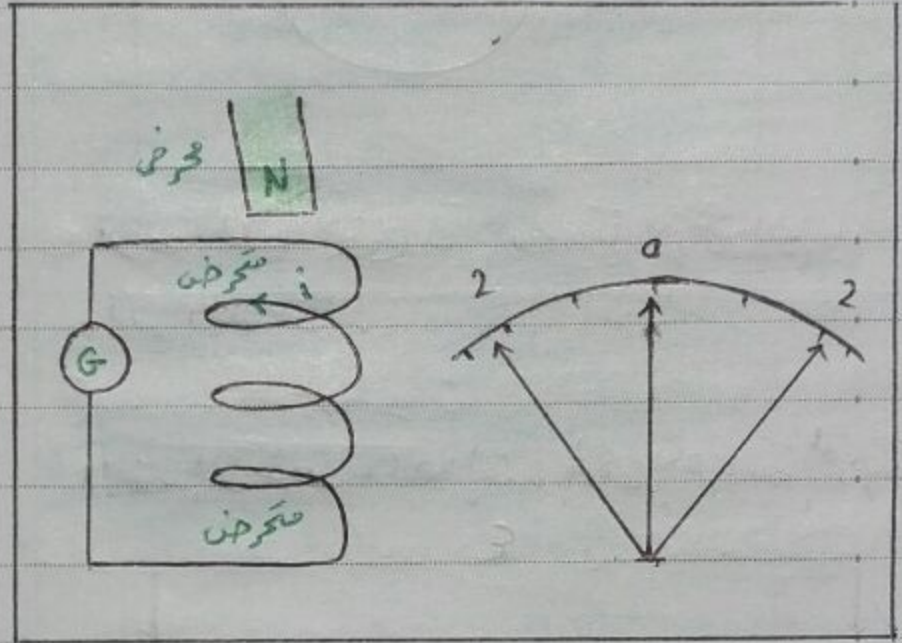 محرض
N
متحرض
i
G
متحرض
2
0
2